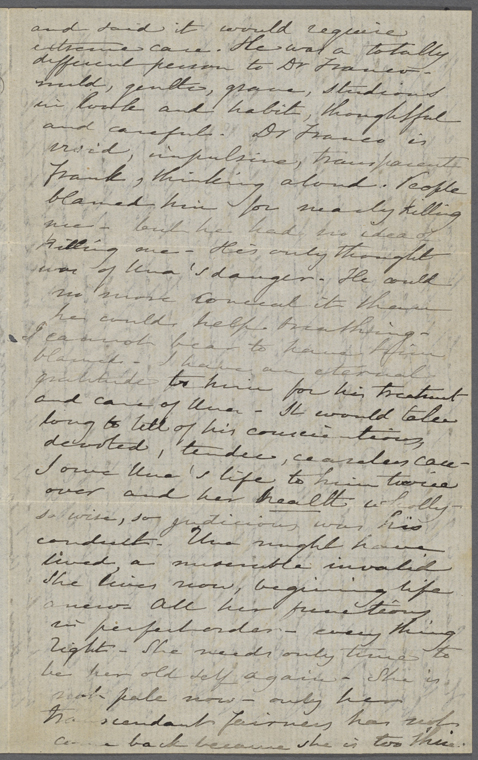 and said it would require
extreme care. He was a totally
different person to Dr Franco -
mild, gentle, grave, studious
in look and habit, thoughtful
and careful - Dr Franco is
vivid, impulsive, transparent
frank, thinking aloud. People
blamed him for nearly killing
me - but he had no idea of
killing me - His only thought
was of Una's danger - He could
no more conceal it than
he could help breathing -
I cannot bear to have him
blamed - I have an eternal
gratitude to him for his treatment
and care of Una - It would take
long to tell of his conscientious,
devoted, tender, ceaseless care -
I owe Una's life to him twice
over and her health wholly -
so wise, so judicious was his
conduct - Una might have
lived, a miserable invalid
She lives now, begining life
anew - All her functions
in perfect order - every thing
right - She needs only time to
be her old self again - She is
not pale now - only her
transcendant fairness has not
come back because she is too thin.